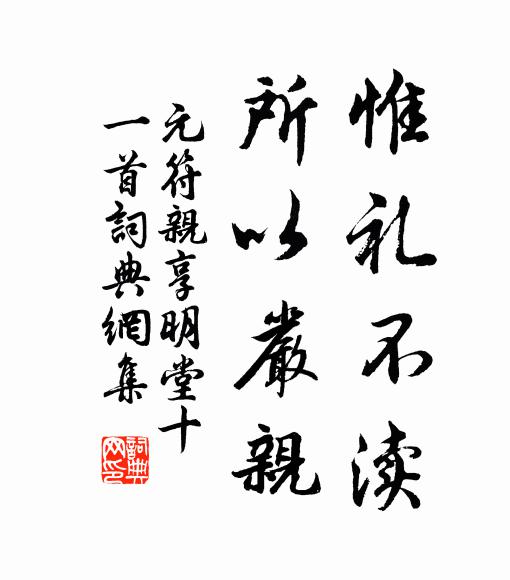 惟礼不渎
所以嚴親
元符親享明堂十
一首詞典網集
詞典網印